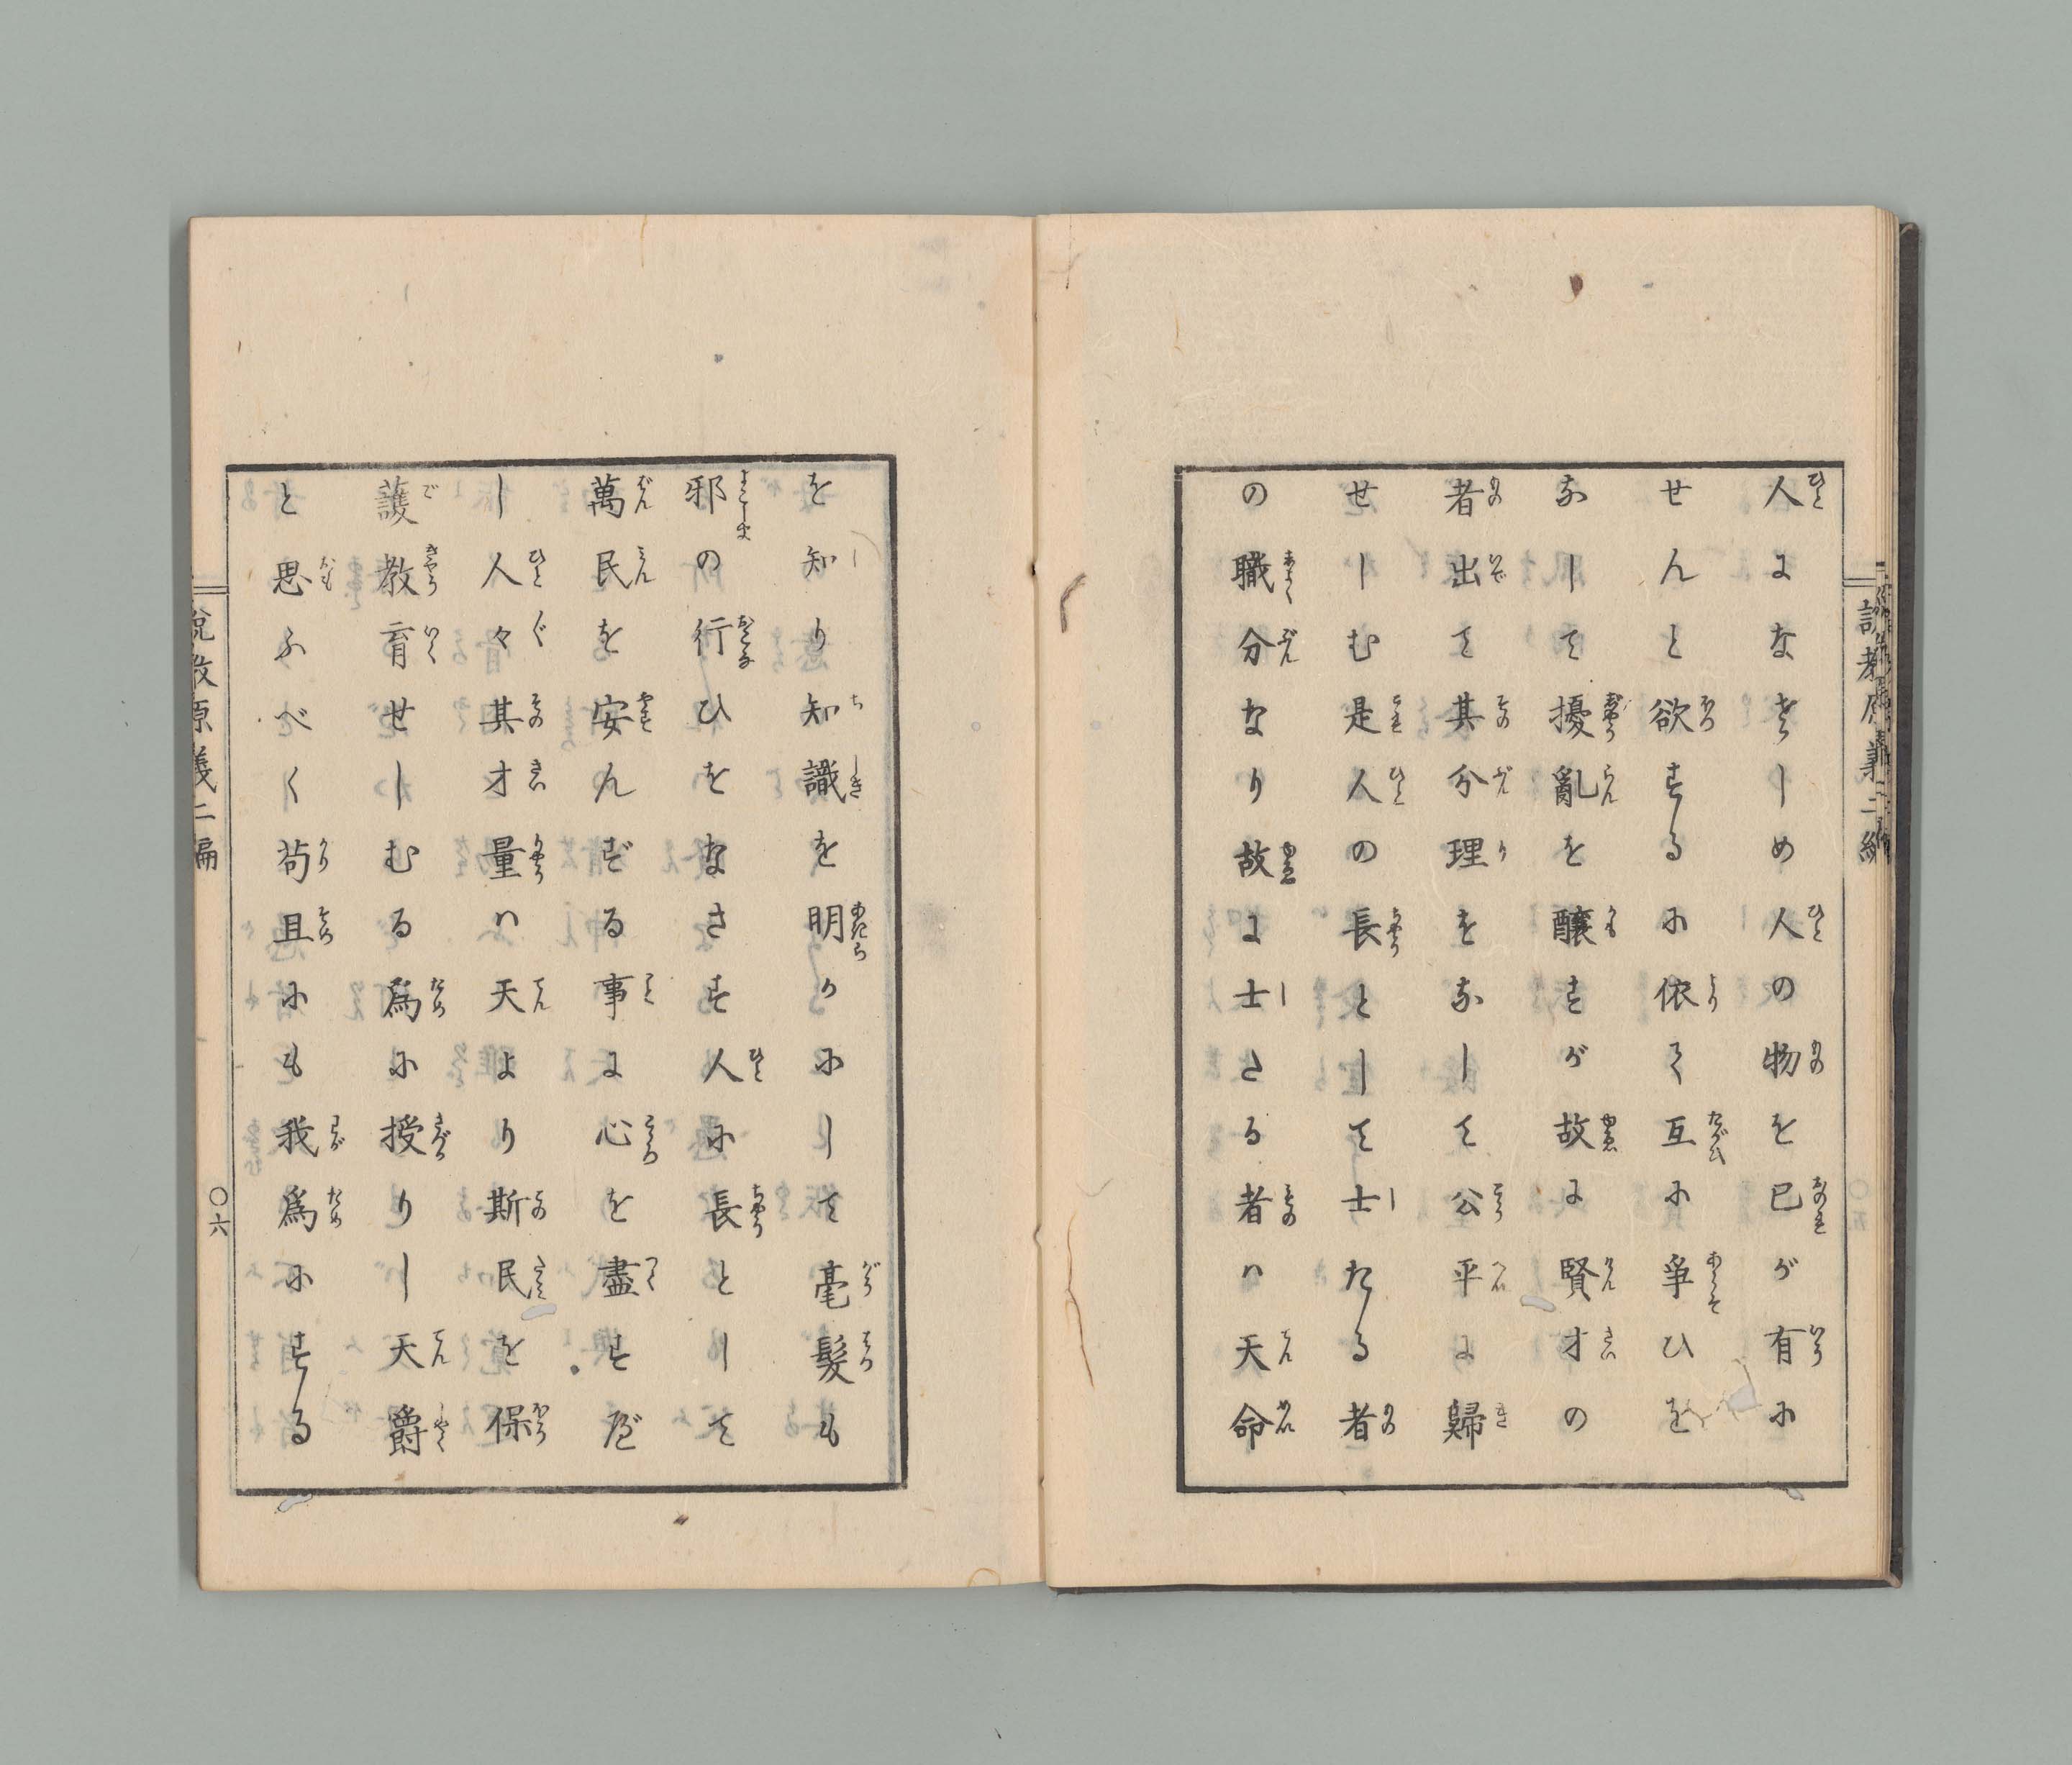 人になさしめ人の物を已が有に
せんと欲するに依て互に爭ひを
なして擾亂を釀すが故に賢才の
者出て其分理をなして公平に歸
せしむ是人の長として士たる者
の職分なり故に士たる者ハ天命
を知り知識を明かにして毫髮も
邪の行ひをなさす人に長として
萬民を安んずる事に心を盡すべ
し人々其才量ハ天より斯民を保
護教育せしむる爲に授りし天爵
と思ふべく苟且にも我爲にする
説教原義二編
〇六